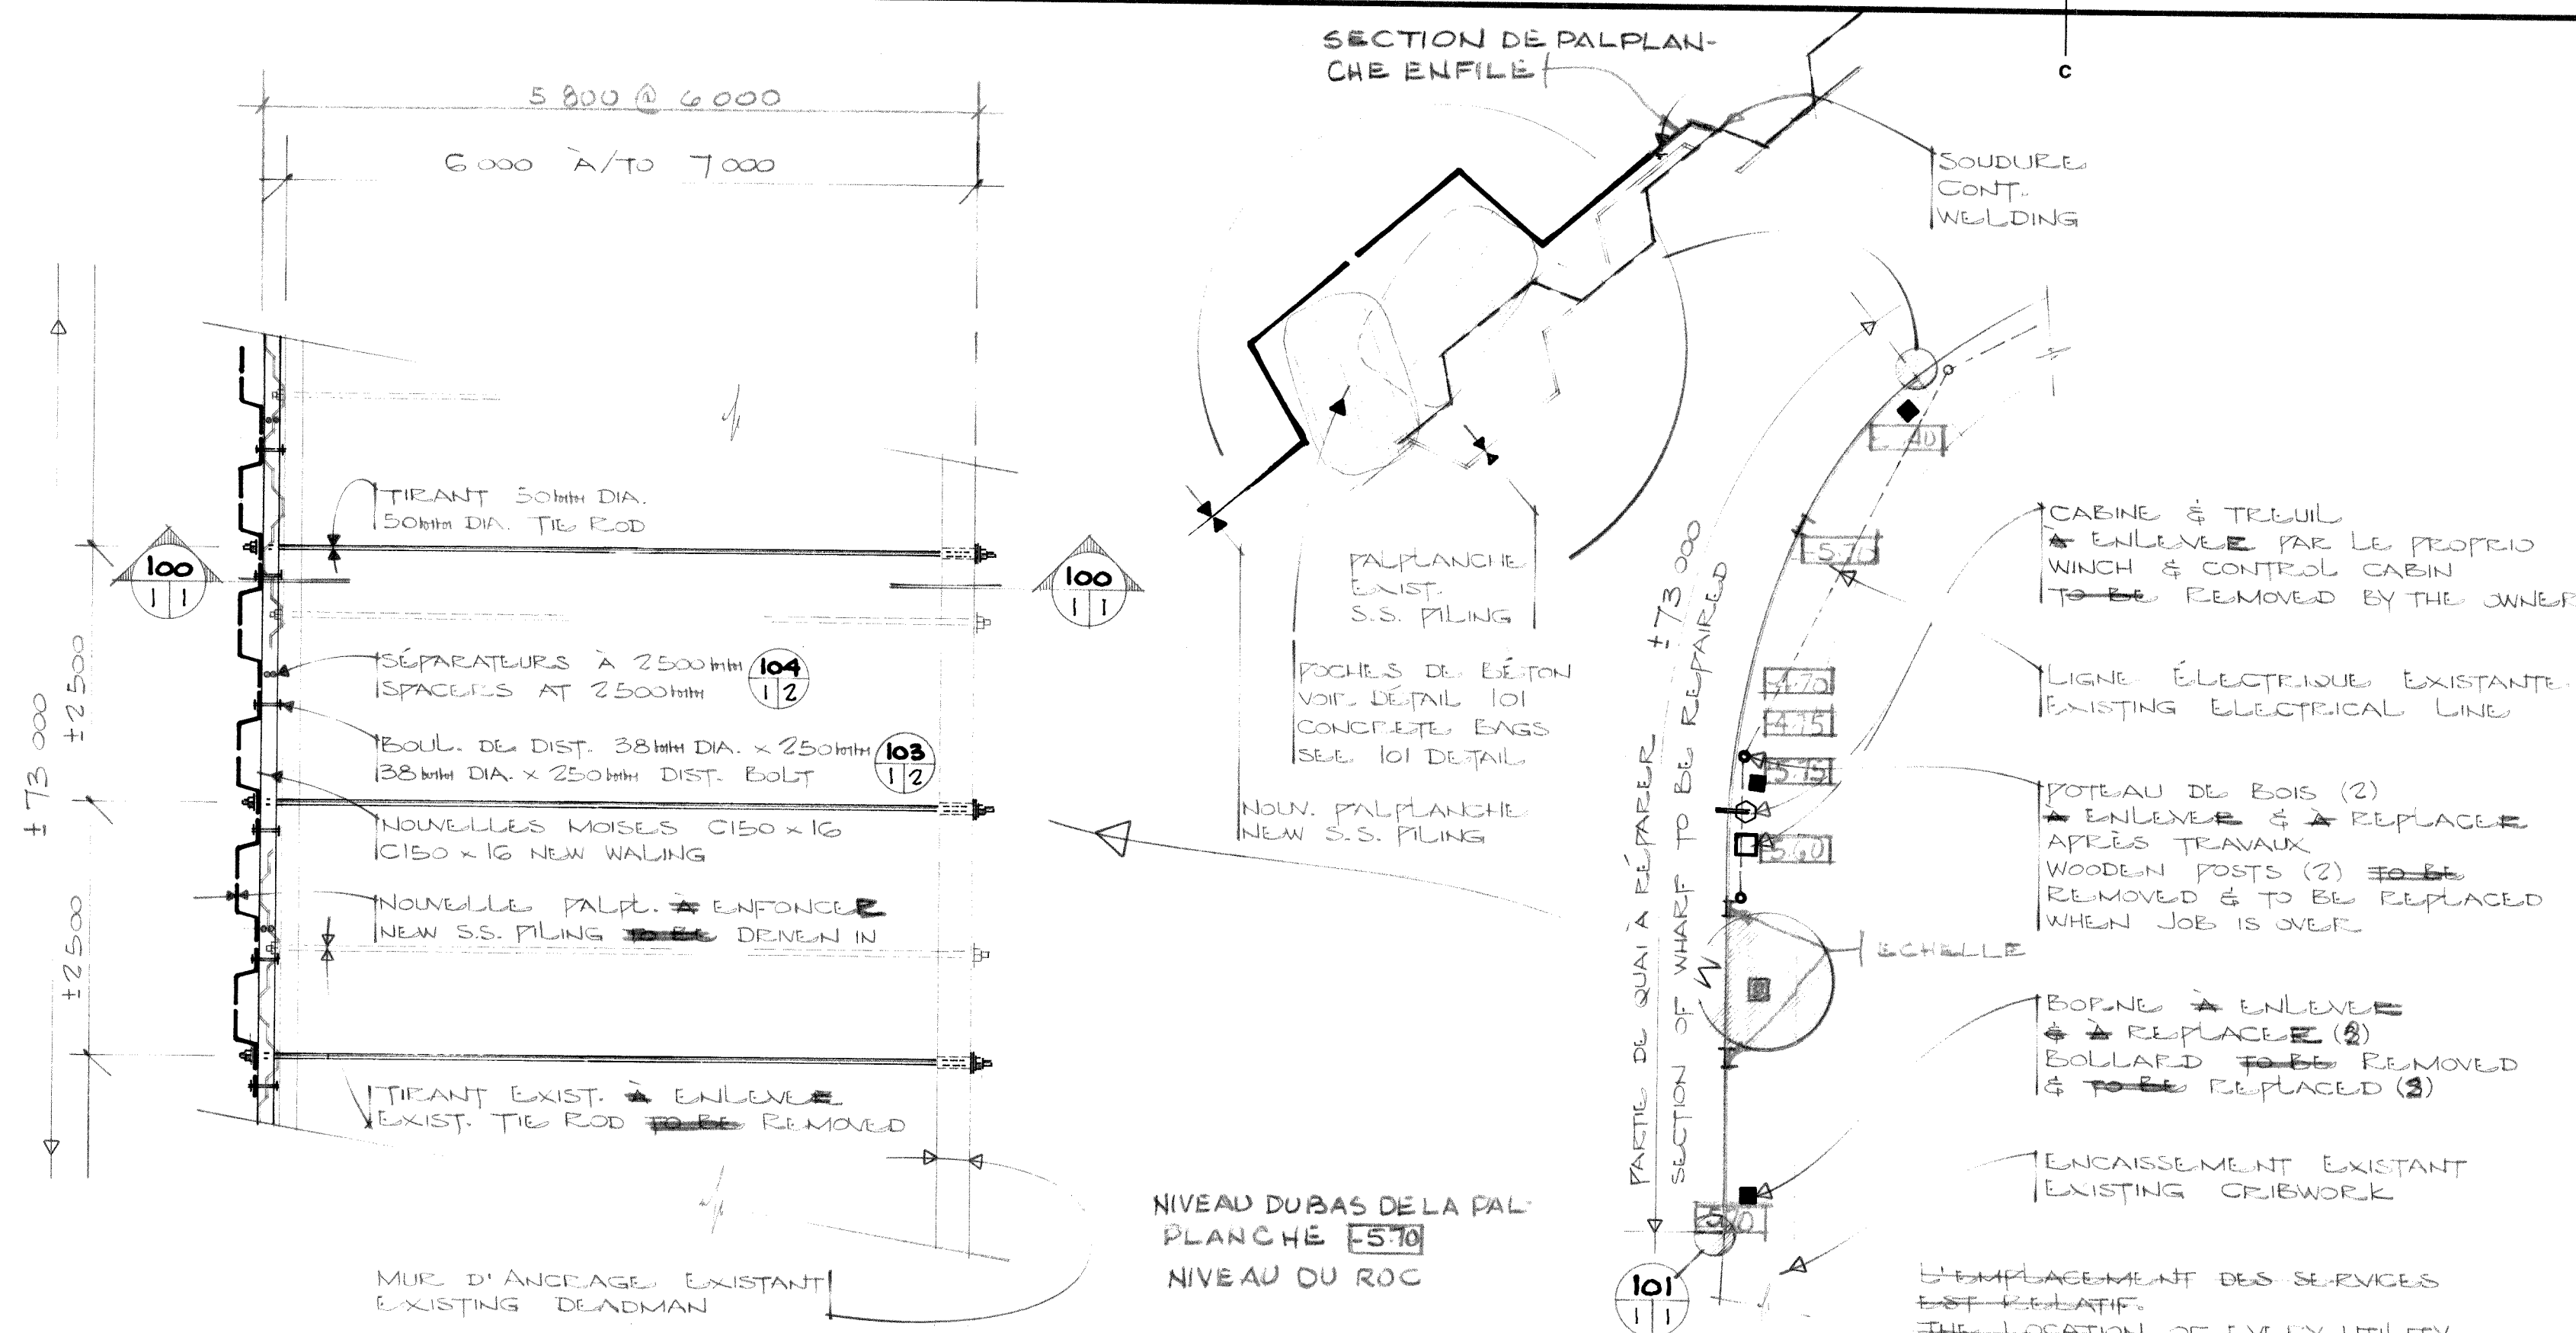 SECTION DE PALPLAN-
CHE ENFILÉ
C
5 800 @ 6 000
6 000 À/TO 7 000
SOUDURE
CONT.
WELDING
TIRANT 50mm DIA.
50mm DIA. TIE ROD
100
1 1
100
1 1
SÉPARATEURS À 2500mm
SPACERS AT 2500mm
104
1 2
BOUL. DE DIST. 38mm DIA. x 250mm
38mm DIA. x 250mm DIST. BOLT
103
1 2
NOUVELLES MOISES C150 x 16
C150 x 16 NEW WALING
NOUVELLE PALPL. À ENFONCER
NEW S.S. PILING TO BE DRIVEN IN
TIRANT EXIST. À ENLEVER
EXIST. TIE ROD TO BE REMOVED
MUR D'ANCRAGE EXISTANT
EXISTING DEADMAN
±73 000
±2500
±2500
PALPLANCHE
EXIST.
S.S. PILING
POCHES DE BÉTON
VOIR DÉTAIL 101
CONCRETE BAGS
SEE 101 DETAIL
NOUV. PALPLANCHE
NEW S.S. PILING
NIVEAU DU BAS DE LA PAL-
PLANCHE -5.70
NIVEAU DU ROC
±73 000
PARTIE DE QUAI À RÉPARER
SECTION OF WHARF TO BE REPAIRED
-5.70
-4.70
-4.75
-5.75
-5.60
101
1 1
CABINE & TREUIL
À ENLEVER PAR LE PROPRIO
WINCH & CONTROL CABIN
TO BE REMOVED BY THE OWNER
LIGNE ÉLECTRIQUE EXISTANTE
EXISTING ELECTRICAL LINE
POTEAU DE BOIS (2)
À ENLEVER & À REPLACER
APRÈS TRAVAUX
WOODEN POSTS (2) TO BE
REMOVED & TO BE REPLACED
WHEN JOB IS OVER
ECHELLE
BORNE À ENLEVER
& À REPLACER (3)
BOLLARD TO BE REMOVED
& TO BE REPLACED (3)
ENCAISSEMENT EXISTANT
EXISTING CRIBWORK
L'EMPLACEMENT DES SERVICES
EST RELATIF.
THE LOCATION OF EVERY UTILITY